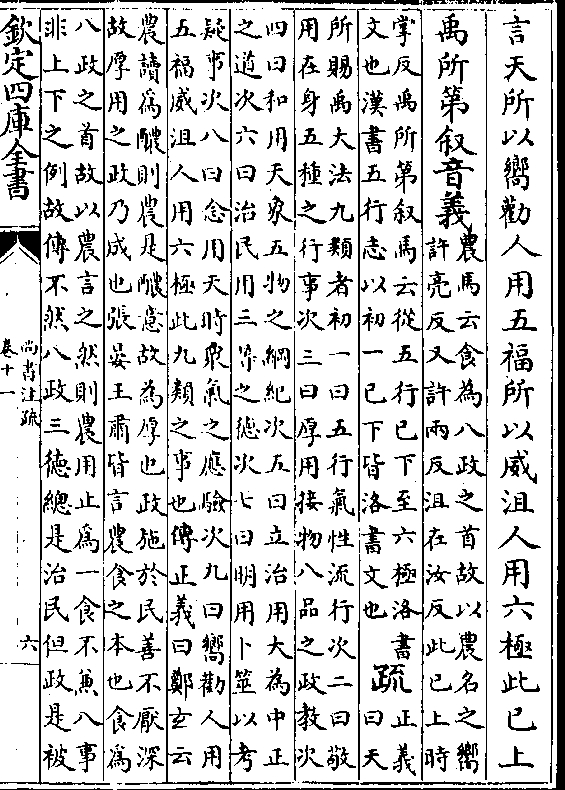 言天所以嚮勸人用五福所以威沮人用六極此已上
禹所第叙音義農馬云食為八政之首故以農名之嚮
許亮反又許兩反沮在汝反此已上時
掌反禹所第叙馬云從五行已下至六極洛書
文也漢書五行志以初一已下皆洛書文也
疏正義
曰天
所賜禹大法九類者初一曰五行氣性流行次二曰敬
用在身五種之行事次三曰厚用接物八品之政教次
四曰和用天象五物之綱紀次五曰立治用大為中正
之道次六曰治民用三等之德次七曰明用卜筮以考
疑事次八曰念用天時衆氣之應驗次九曰嚮勸人用
五福威沮人用六極此九類之事也傳正義曰鄭玄云
農讀爲醲則農是醲意故為厚也政施於民善不厭深
故厚用之政乃成也張晏王肅皆言農食之本也食爲
八政之首故以農言之然則農用止爲一食不兼八事
非上下之例故傳不然八政三德總是治民但政是被
欽定四庫全書
尚書注疏
卷十一
六